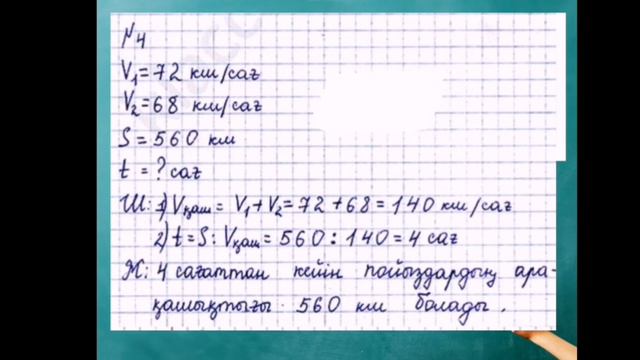 №4
V₁=72 км/сағ
V₂=68 км/сағ
S=560 км
t=? сағ
Ш: 1) Vқаш = V₁+V₂=72+68=140 км/сағ
2) t=S:Vқаш=560:140=4 сағ
Ж: 4 сағаттан кейін пойыздардың ара-
қашықтығы 560 км болады.